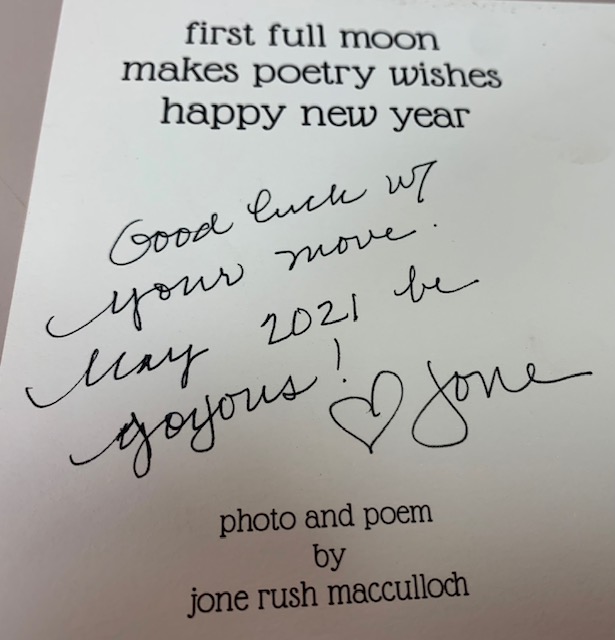 first full moon
makes poetry wishes
happy new year
Good luck w/
your move.
May 2021 be
joyous!
♡ Jone
photo and poem
by
jone rush macculloch